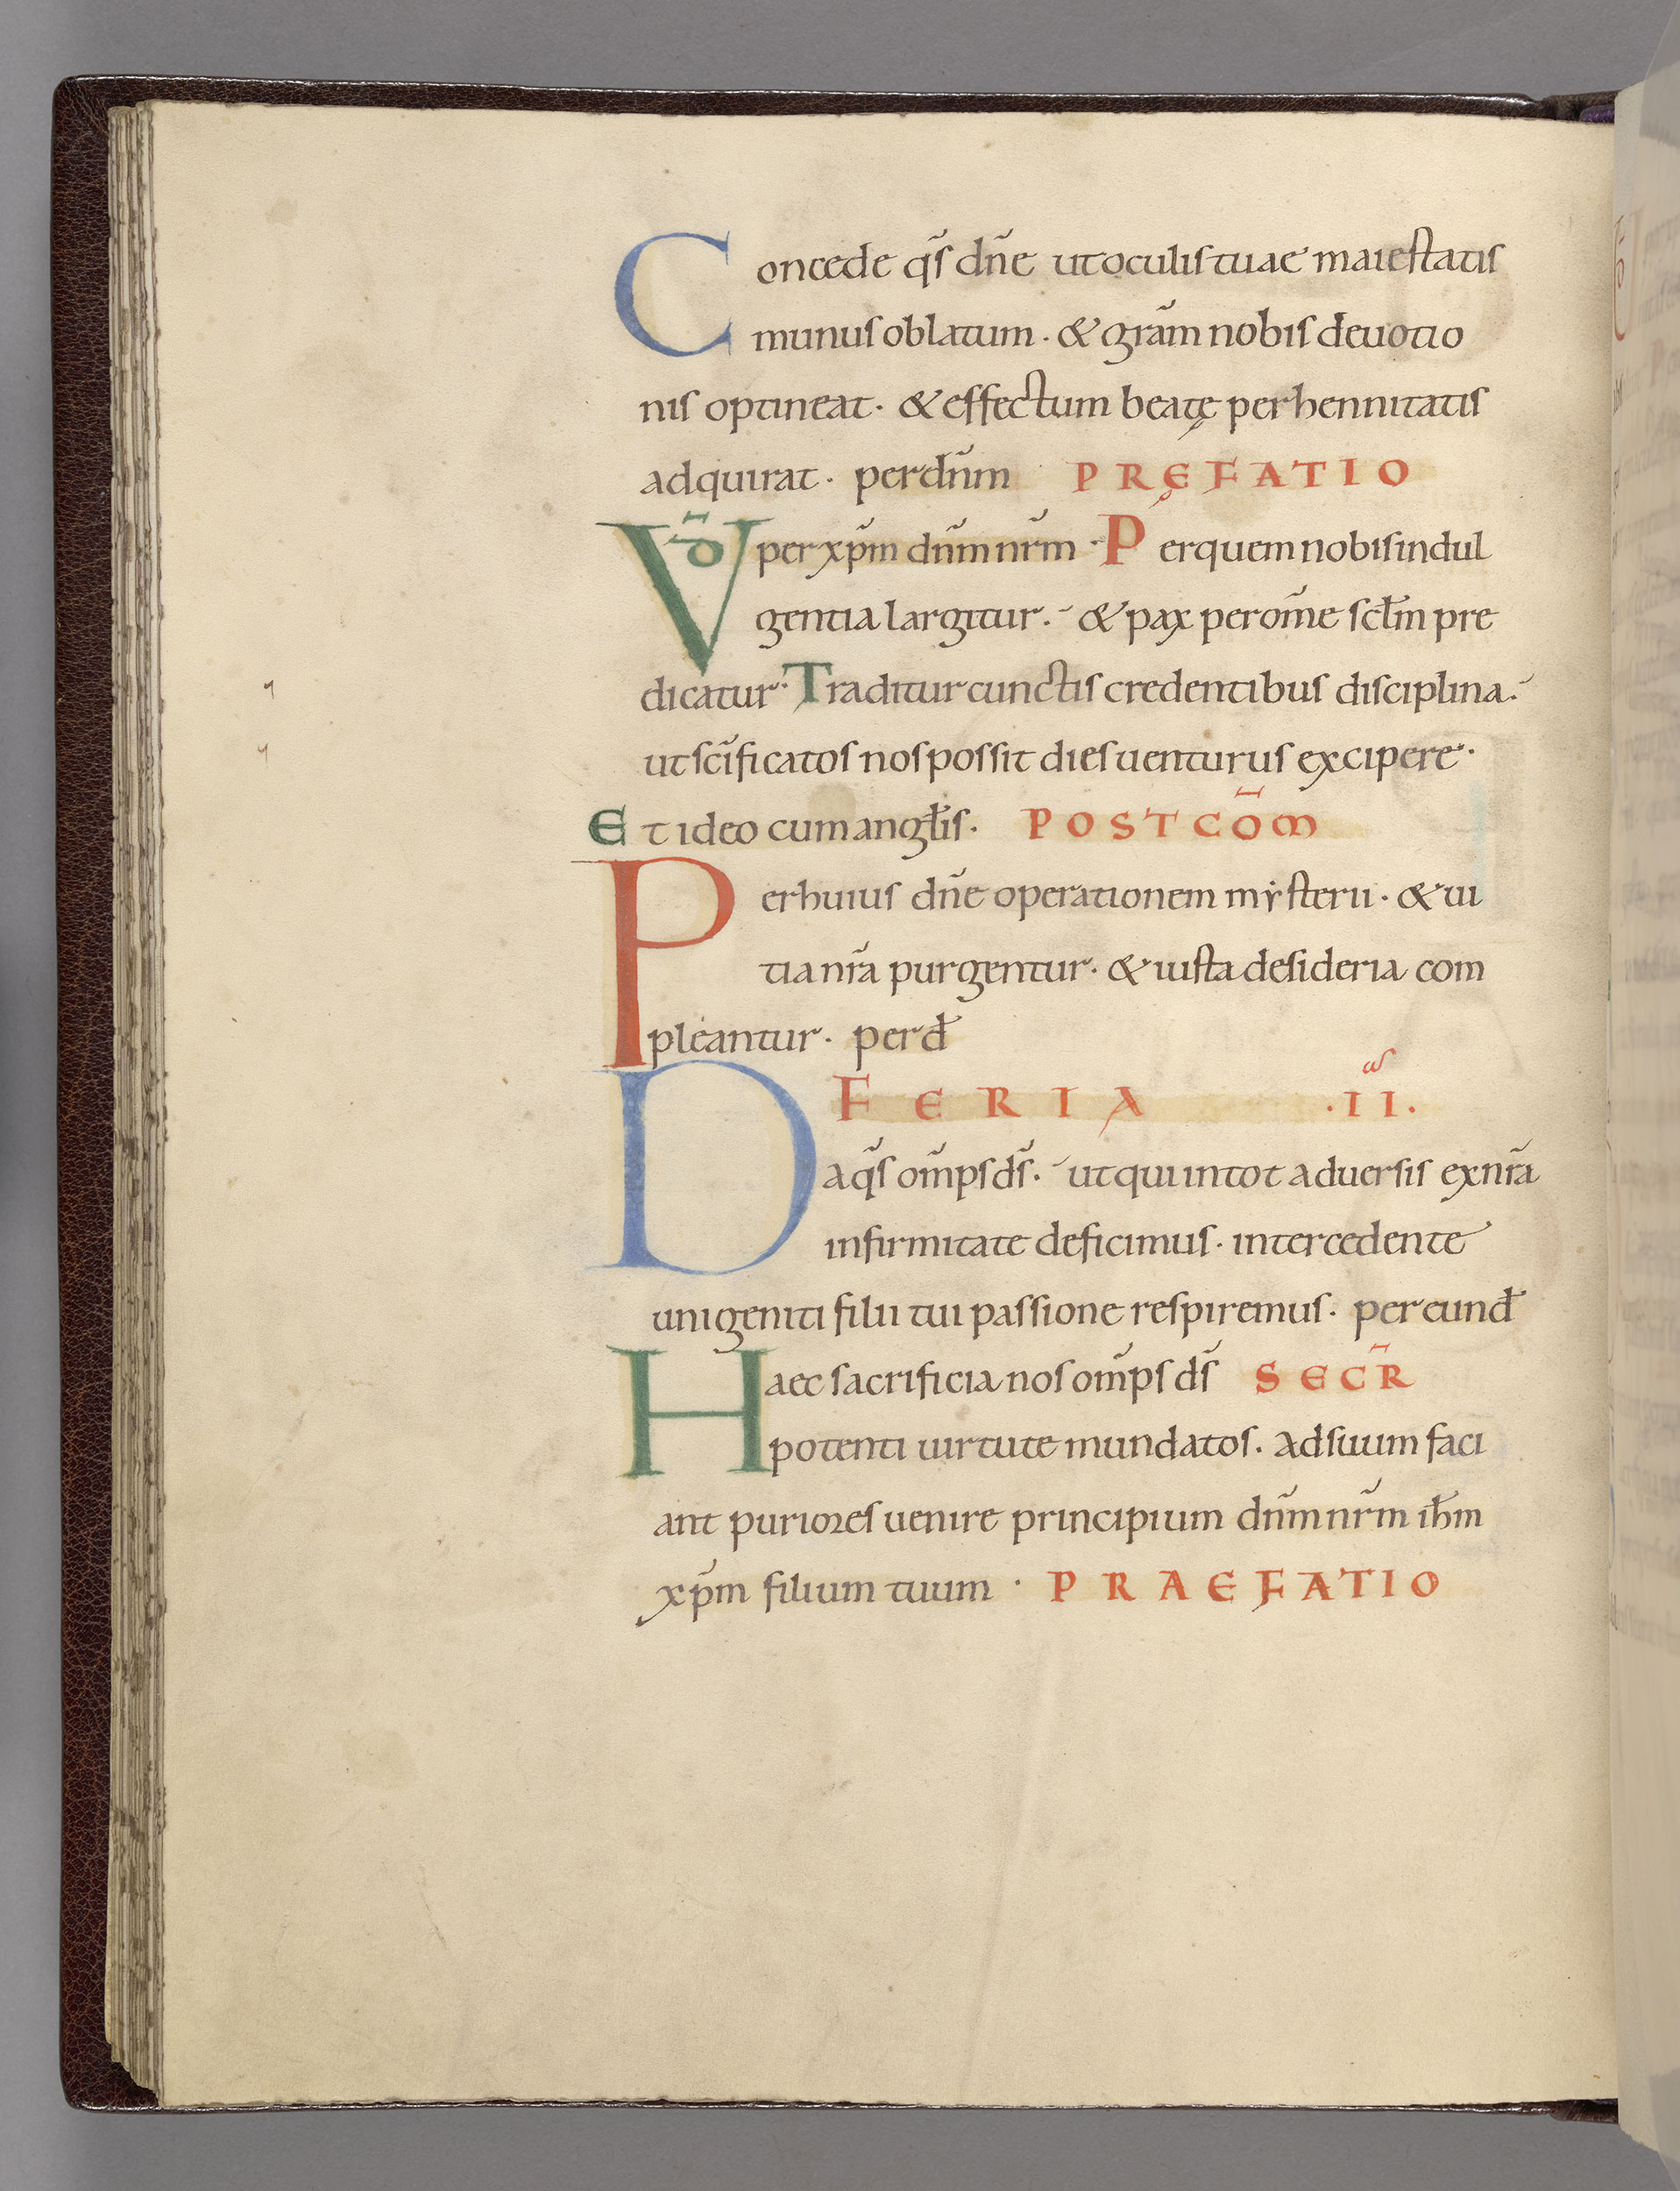 Concede q̄s dn̄e ut oculis tuae maiestatis
munus oblatum · & grām nobis deuotio
nis optineat · & effectum beatę perhennitatis
adquirat · per dn̄m PRĘFATIO
VD̄ per xp̄m dn̄m nr̄m · Per quem nobis indul
gentia largitur · & pax per om̄e sc̄lm pre
dicatur · Traditur cunctis credentibus disciplina ·
ut sc̄ificatos nos possit dies uenturus excipere ·
Et ideo cum angl̄is · POST COM̄
Per huius dn̄e operationem mẏsterii · & ui
tia nr̄a purgentur · & iusta desideria com
pleantur · per d̄
FERIA · II ·
Da q̄s om̄ps d̄s · ut qui in tot aduersis ex nr̄a
infirmitate deficimus · intercedente
unigeniti filii tui passione respiremus · per eund̄
Haec sacrificia nos om̄ps d̄s SECR̄
potenti uirtute mundatos · ad suum faci
ant puriores uenire principium dn̄m nr̄m ih̄m
xp̄m filium tuum · PRAEFATIO